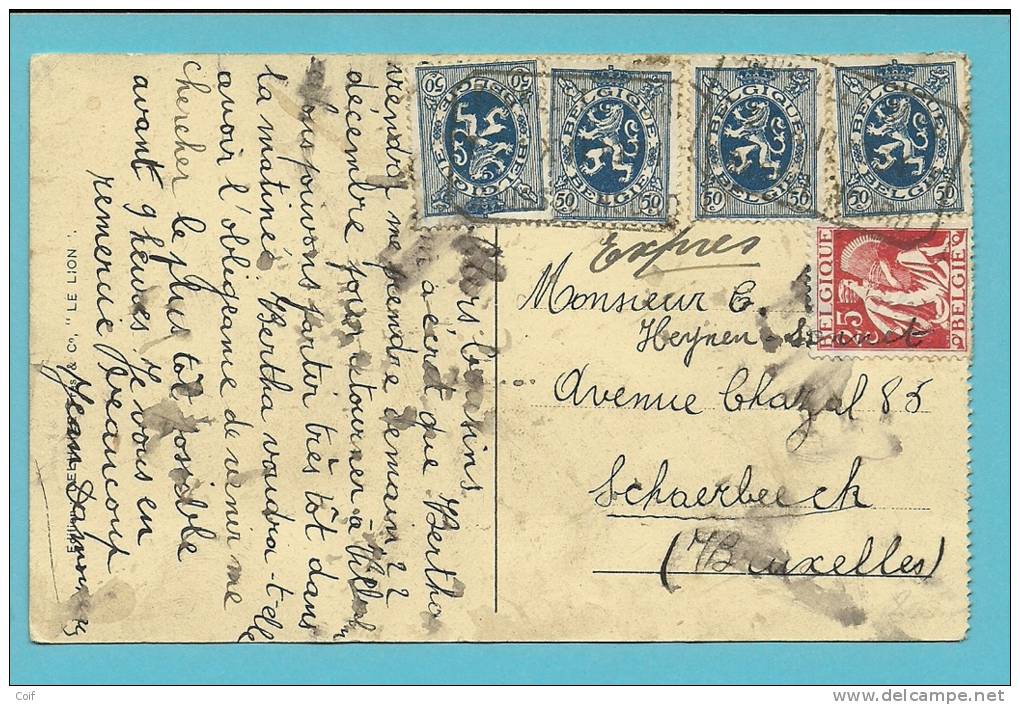 Chers Cousins
a écrit que Bertha
viendra me prendre demain 22
décembre pour retourner à
Nous pouvons partir très tôt dans
la matinée. Bertha voudra-t-elle
avoir l'obligeance de venir me
chercher le plus tôt possible
avant 9 heures. Je vous en
remercie beaucoup
Jean
& Co. "LE LION".
50 BELGIQUE 50
BELGIE
BELGIQUE
BELGIE
50 50
BELGIQUE
BELGIE
50 50
BELGIQUE
BELGIE
50 50
BELGIQUE
75
BELGIE
Expres
Monsieur E.
Heynen-
Avenue Chazal 85
Schaerbeeck
(Bruxelles)
Coif
http://www.delcampe.net